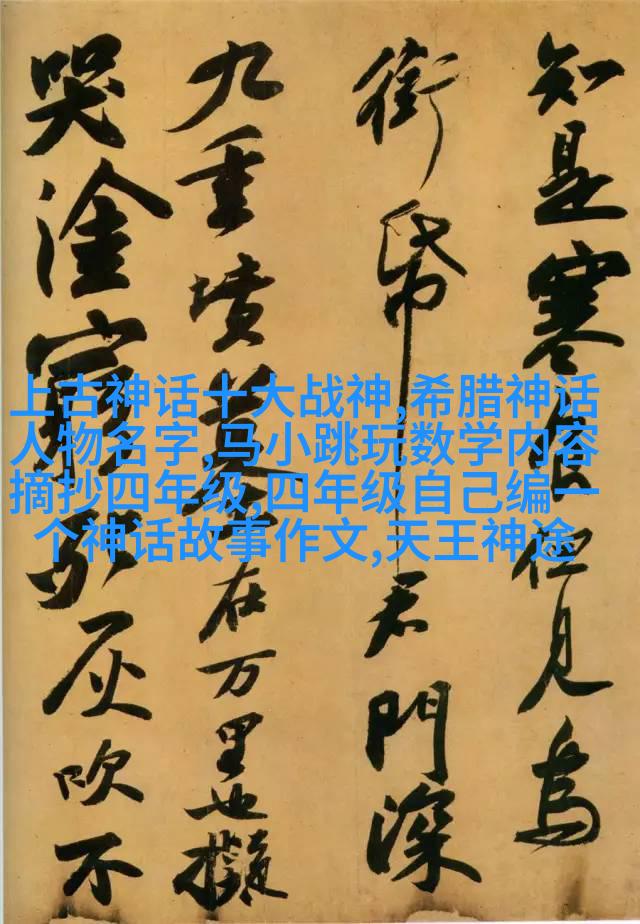 知是寒食但見烏
銜帋君門深
九重墳墓在万里也擬
哭塗窮死灰吹不
上古神话十大战神,希腊神话
人物名字,马小跳玩数学内容
摘抄四年级,四年级自己编一
个神话故事作文,天王神途